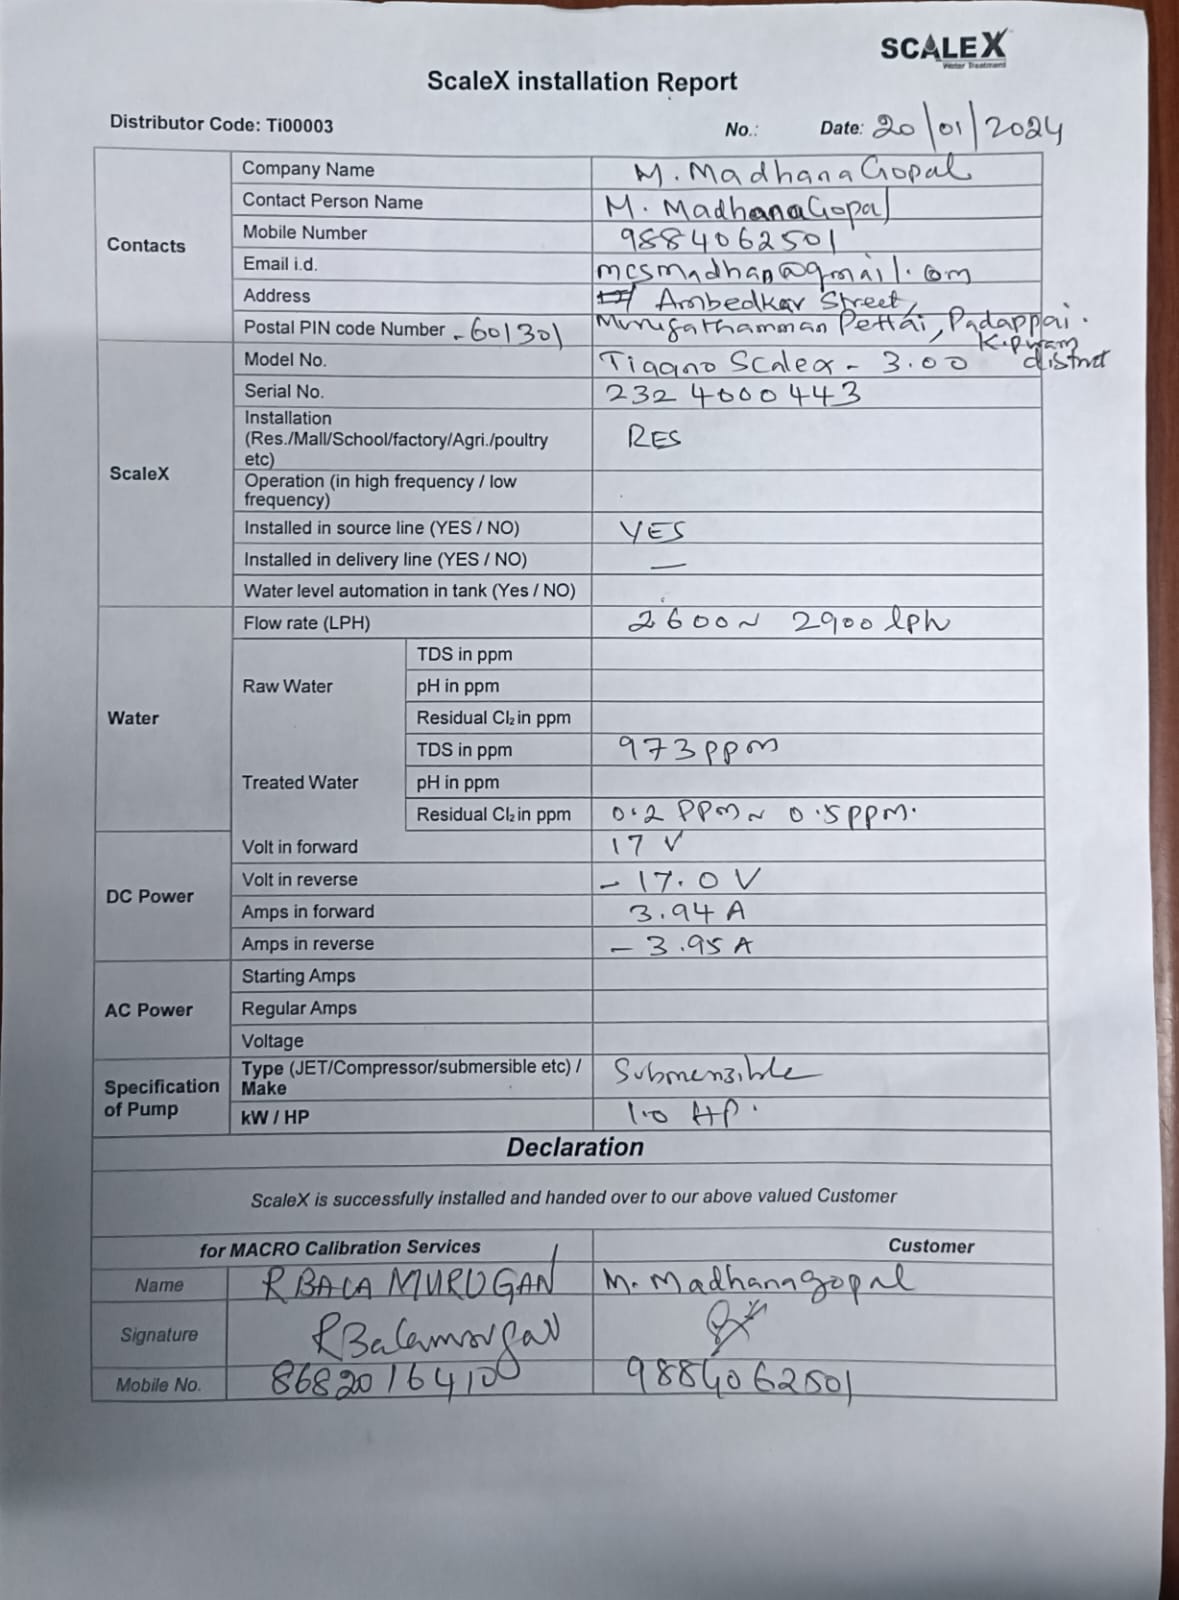 SCALEX
Water Treatment
ScaleX installation Report
Distributor Code: Ti00003
No.: Date: 20/01/2024
Contacts
Company Name M. MadhanaGopal
Contact Person Name M. MadhanaGopal
Mobile Number 9884062501
Email i.d. mcsmadhan@gmail.com
Address Ambedkar Street,
Postal PIN code Number - 601301 Murugathamman Pettai, Padappai.
K.puram district
ScaleX
Model No. Tiaano Scalex - 3.00
Serial No. 2324000443
Installation
(Res./Mall/School/factory/Agri./poultry
etc) RES
Operation (in high frequency / low
frequency)
Installed in source line (YES / NO) YES
Installed in delivery line (YES / NO) —
Water level automation in tank (Yes / NO)
Water
Flow rate (LPH) 2600 ~ 2900 lph
Raw Water
TDS in ppm
pH in ppm
Residual Cl2 in ppm
Treated Water
TDS in ppm 973 ppm
pH in ppm
Residual Cl2 in ppm 0.2 PPM ~ 0.5 ppm.
DC Power
Volt in forward 17 V
Volt in reverse - 17.0 V
Amps in forward 3.94 A
Amps in reverse - 3.95 A
AC Power
Starting Amps
Regular Amps
Voltage
Specification
of Pump
Type (JET/Compressor/submersible etc) /
Make Submersible
kW / HP 1.0 HP.
Declaration
ScaleX is successfully installed and handed over to our above valued Customer
for MACRO Calibration Services Customer
Name R BALA MURUGAN M. Madhanagopal
Signature RBalamurugan
Mobile No. 8682016410 9884062501